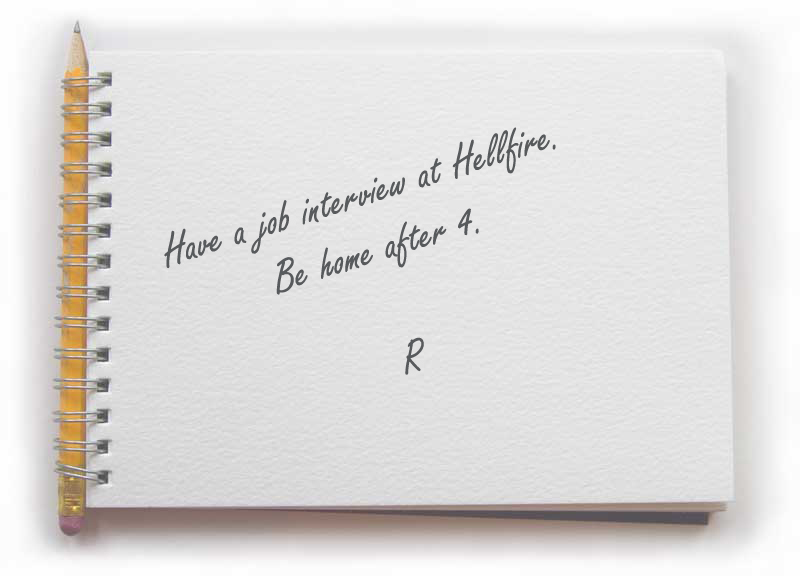 Have a job interview at Hellfire.
Be home after 4.
R